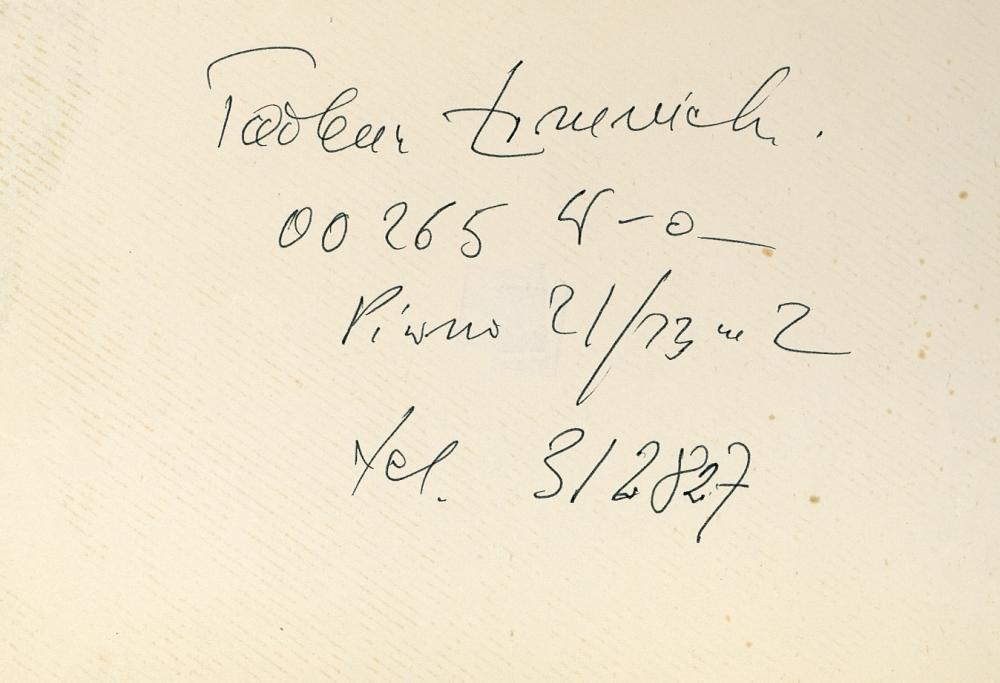 Tadeusz
00265 W-a
Piwna 21/23 m 2
tel. 312827